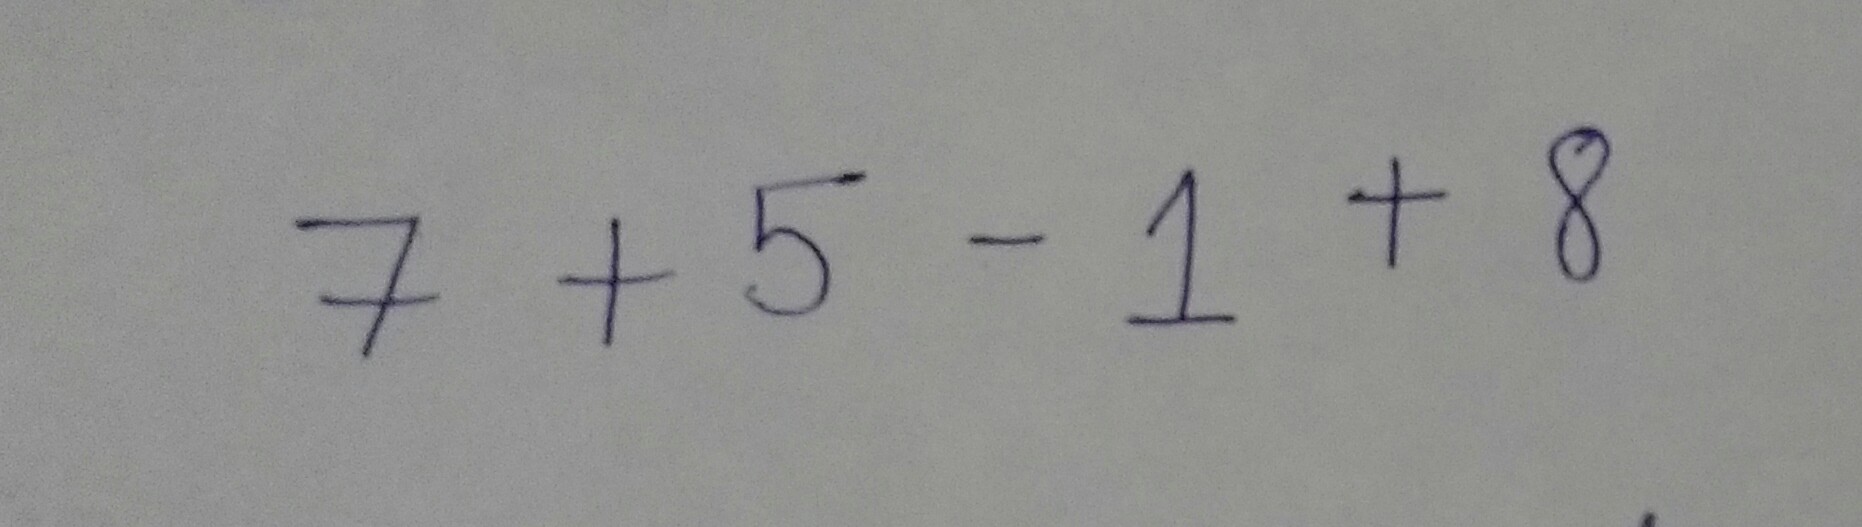 7 + 5 - 1 + 8